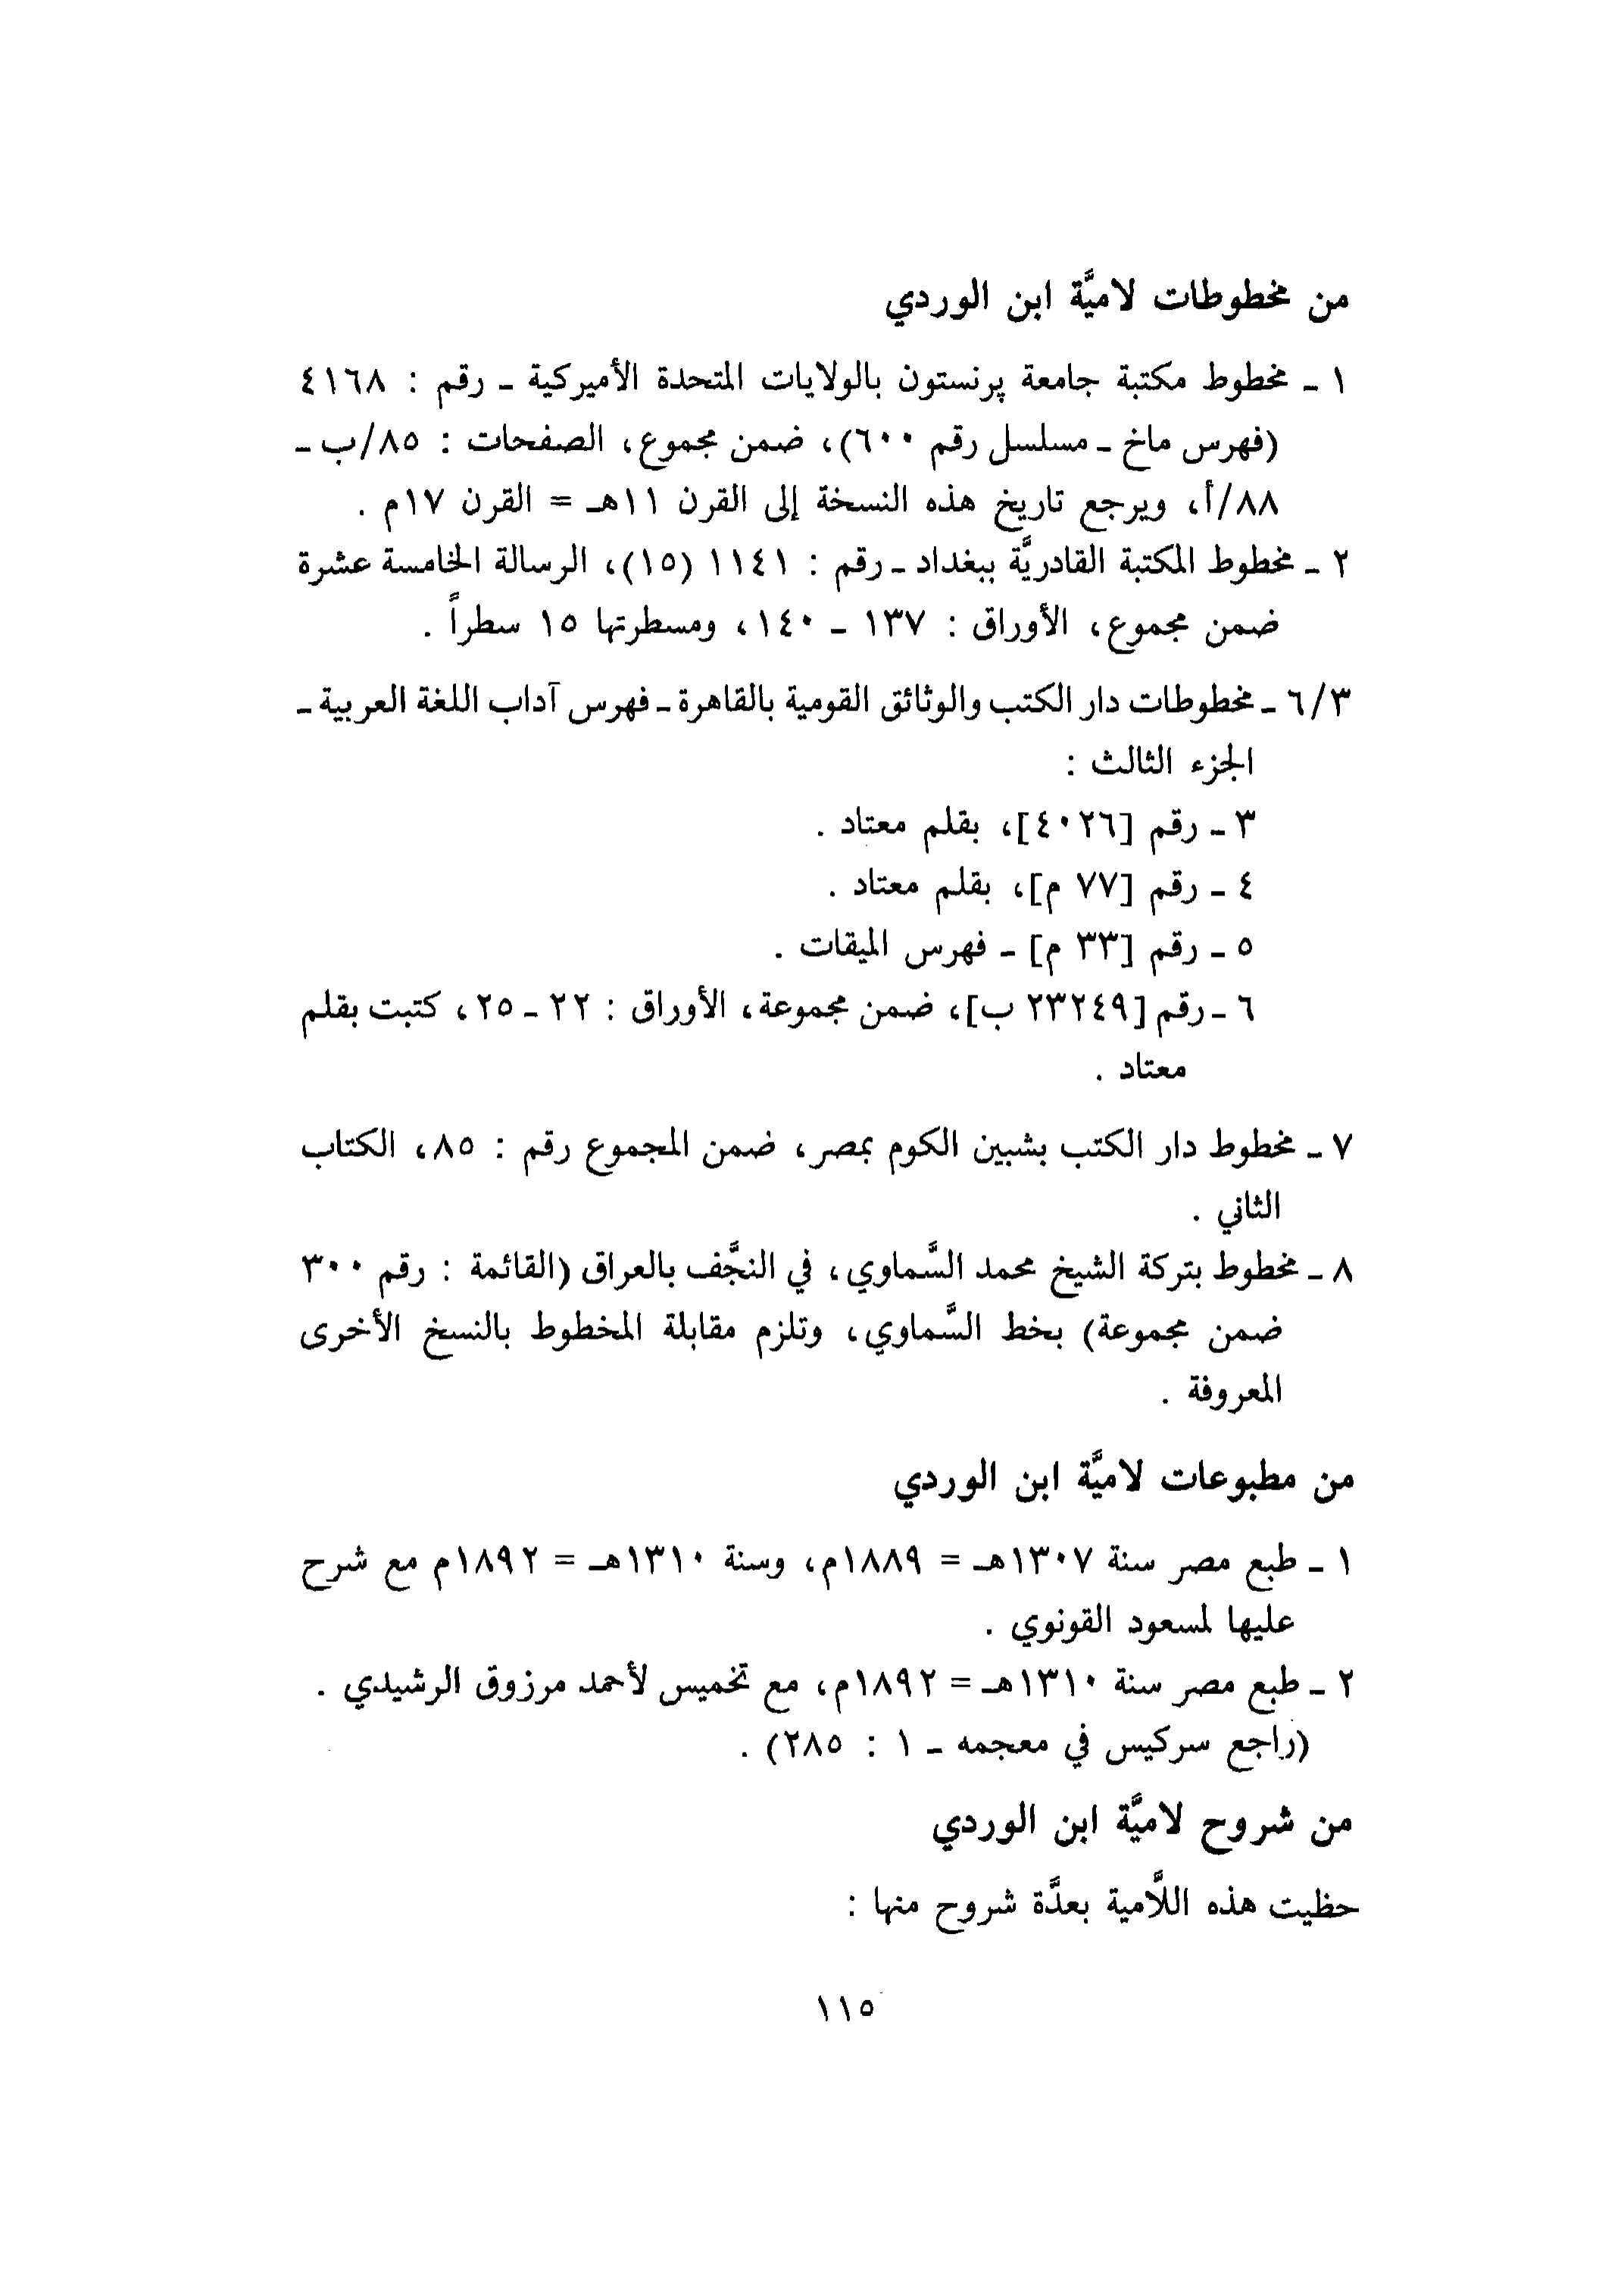 من مخطوطات لاميَّة ابن الوردي
١ ـ مخطوط مكتبة جامعة پرنستون بالولايات المتحدة الأميركية ـ رقم : ٤١٦٨
(فهرس ماخ ـ مسلسل رقم ٦٠٠)، ضمن مجموع، الصفحات : ٨٥/ب ـ
٨٨/أ، ويرجع تاريخ هذه النسخة إلى القرن ١١هـ = القرن ١٧م .
٢ ـ مخطوط المكتبة القادريَّة ببغداد ـ رقم : ١١٤١ (١٥)، الرسالة الخامسة عشرة
ضمن مجموع، الأوراق : ١٣٧ ـ ١٤٠، ومسطرتها ١٥ سطراً .
٦/٣ ـ مخطوطات دار الكتب والوثائق القومية بالقاهرة ـ فهرس آداب اللغة العربية ـ
الجزء الثالث :
٣ ـ رقم [٤٠٢٦]، بقلم معتاد .
٤ ـ رقم [٧٧ م]، بقلم معتاد .
٥ ـ رقم [٣٣ م] ـ فهرس الميقات .
٦ ـ رقم [٢٣٢٤٩ ب]، ضمن مجموعة، الأوراق : ٢٢ ـ ٢٥، كتبت بقلم
معتاد .
٧ ـ مخطوط دار الكتب بشبين الكوم بمصر، ضمن المجموع رقم : ٨٥، الكتاب
الثاني .
٨ ـ مخطوط بتركة الشيخ محمد السَّماوي، في النجَّف بالعراق (القائمة : رقم ٣٠٠
ضمن مجموعة) بخط السَّماوي، وتلزم مقابلة المخطوط بالنسخ الأخرى
المعروفة .
من مطبوعات لاميَّة ابن الوردي
١ ـ طبع مصر سنة ١٣٠٧هـ = ١٨٨٩م، وسنة ١٣١٠هـ = ١٨٩٢م مع شرح
عليها لمسعود القونوي .
٢ ـ طبع مصر سنة ١٣١٠هـ = ١٨٩٢م، مع تخميس لأحمد مرزوق الرشيدي .
(راجع سركيس في معجمه ـ ١ : ٢٨٥) .
من شروح لاميَّة ابن الوردي
حظيت هذه اللَّامية بعدَّة شروح منها :
١١٥